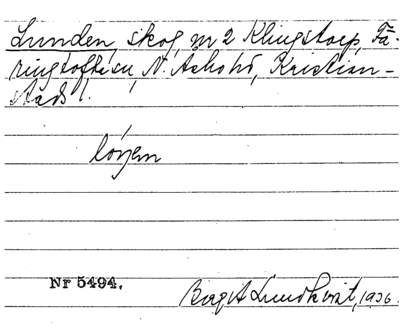 Lunden, skog, nr 2 Klingstorp, Fä-
ringtofta sn, N. Åsbo hd, Kristian-
stads l.
Nr 5494.
Birgit Lundkvist, 1936.